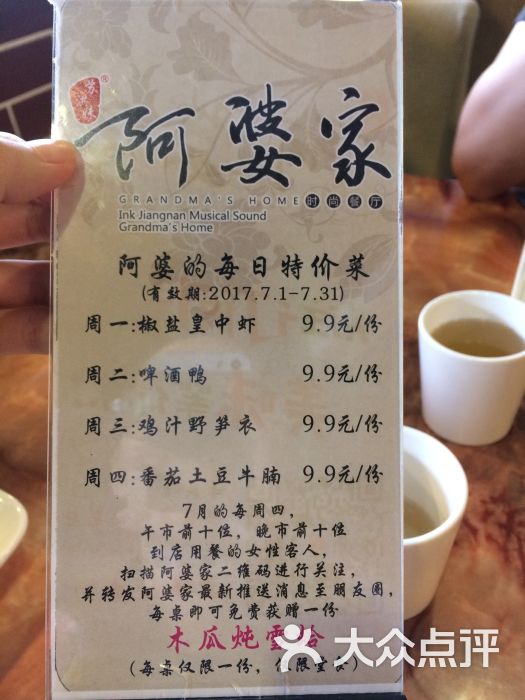 苏小妹®
阿婆家
GRANDMA'S HOME 时尚餐厅
Ink Jiangnan Musical Sound
Grandma's Home
阿婆的每日特价菜
(有效期:2017.7.1-7.31)
周一:椒盐皇中虾 9.9元/份
周二:啤酒鸭 9.9元/份
周三:鸡汁野笋衣 9.9元/份
周四:番茄土豆牛腩 9.9元/份
7月的每周四,
午市前十位, 晚市前十位
到店用餐的女性客人,
扫描阿婆家二维码进行关注,
并转发阿婆家最新推送消息至朋友圈,
每桌即可免费获赠一份
木瓜炖雪蛤
(每桌仅限一份, 仅限堂食)
大众点评